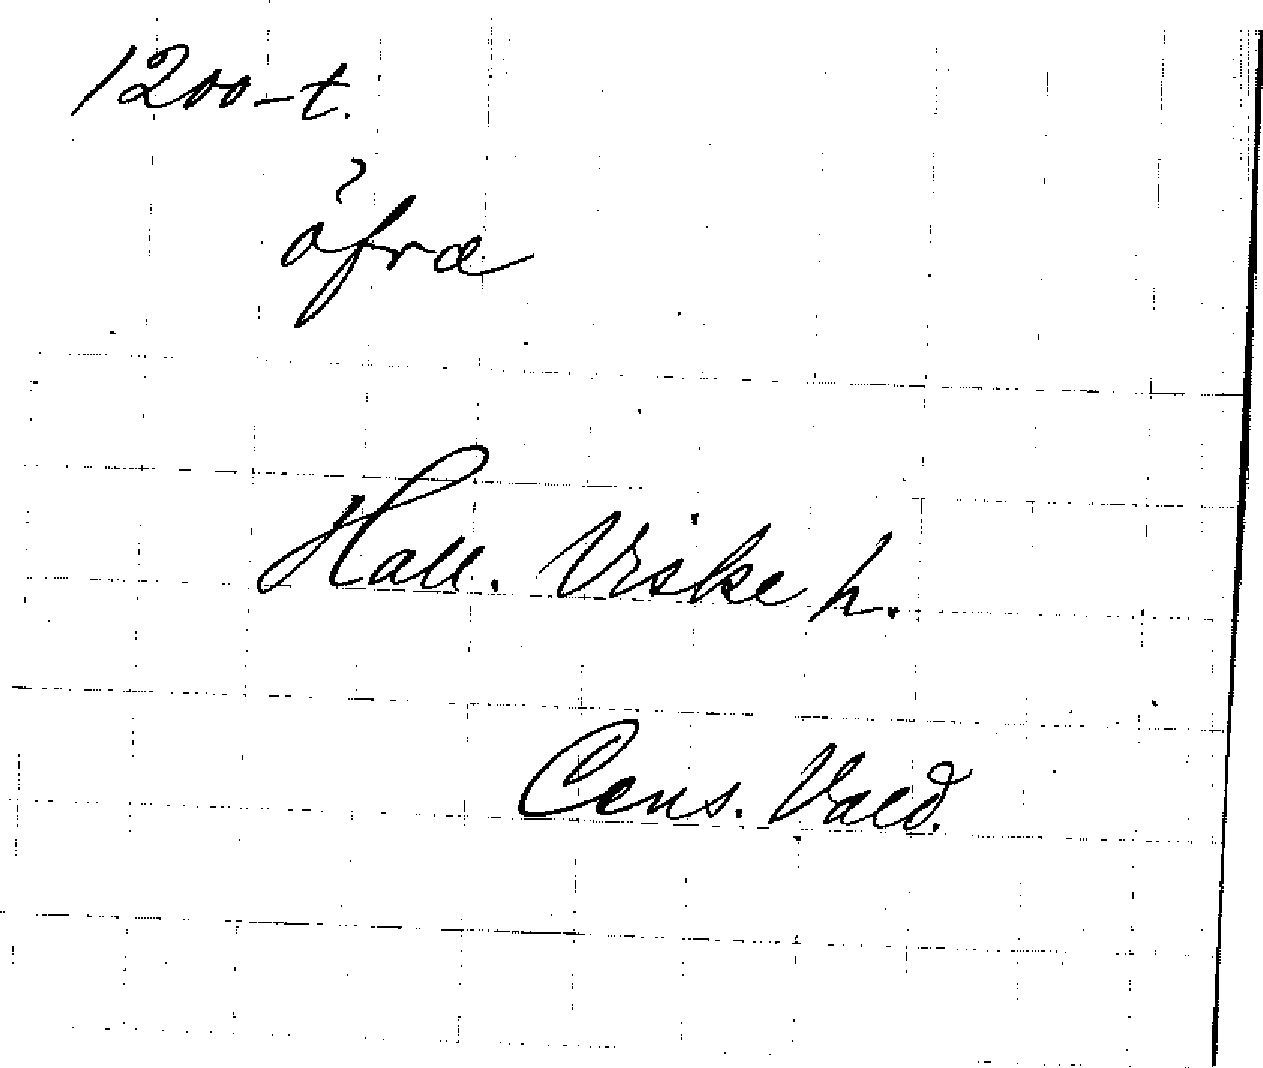 1200-t.
öfra
Hall. Viske h.
Cens. Vald.